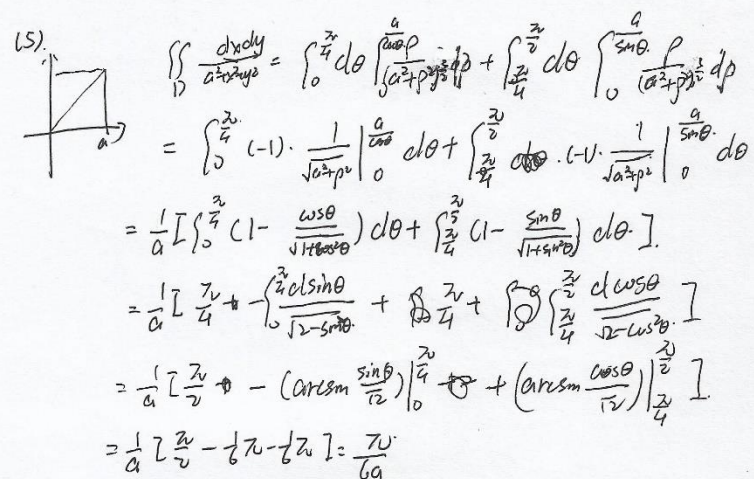 (5). ∬_D dxdy/(a²+x²+y²) = ∫_0^{π/4} dθ ∫_0^{a/cosθ} ρ/(a²+ρ²)^{3/2} dρ + ∫_{π/4}^{π/2} dθ ∫_0^{a/sinθ} ρ/(a²+ρ²)^{3/2} dρ
a
= ∫_0^{π/4} (-1)· 1/√(a²+ρ²) |_0^{a/cosθ} dθ + ∫_{π/4}^{π/2} (-1)· 1/√(a²+ρ²) |_0^{a/sinθ} dθ
= 1/a [∫_0^{π/4} (1 - cosθ/√(1+cos²θ)) dθ + ∫_{π/4}^{π/2} (1 - sinθ/√(1+sin²θ)) dθ.].
= 1/a [π/4 - ∫_0^{π/4} dsinθ/√(2-sin²θ) + π/4 + ∫_{π/4}^{π/2} dcosθ/√(2-cos²θ)]
= 1/a [π/2 - (arcsin sinθ/√2)|_0^{π/4} + (arcsin cosθ/√2)|_{π/4}^{π/2}].
= 1/a [π/2 - 1/6π - 1/6π] = π/6a